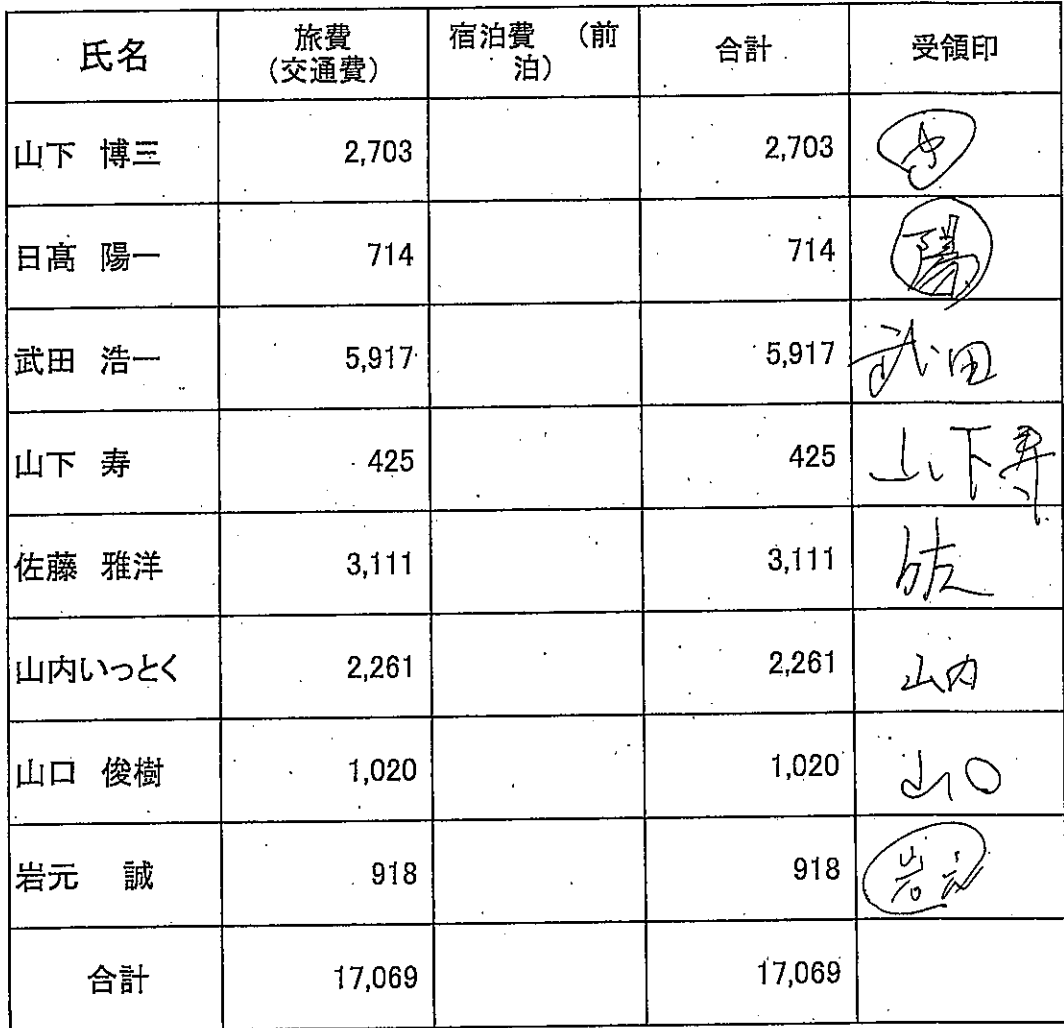 氏名 旅費 (交通費) 宿泊費 (前泊) 合計 受領印
山下 博三 2,703 2,703
日髙 陽一 714 714 陽
武田 浩一 5,917 5,917 武田
山下 寿 425 425 山下寿
佐藤 雅洋 3,111 3,111 佐
山内いっとく 2,261 2,261 山内
山口 俊樹 1,020 1,020 山口
岩元 誠 918 918 岩元
合計 17,069 17,069